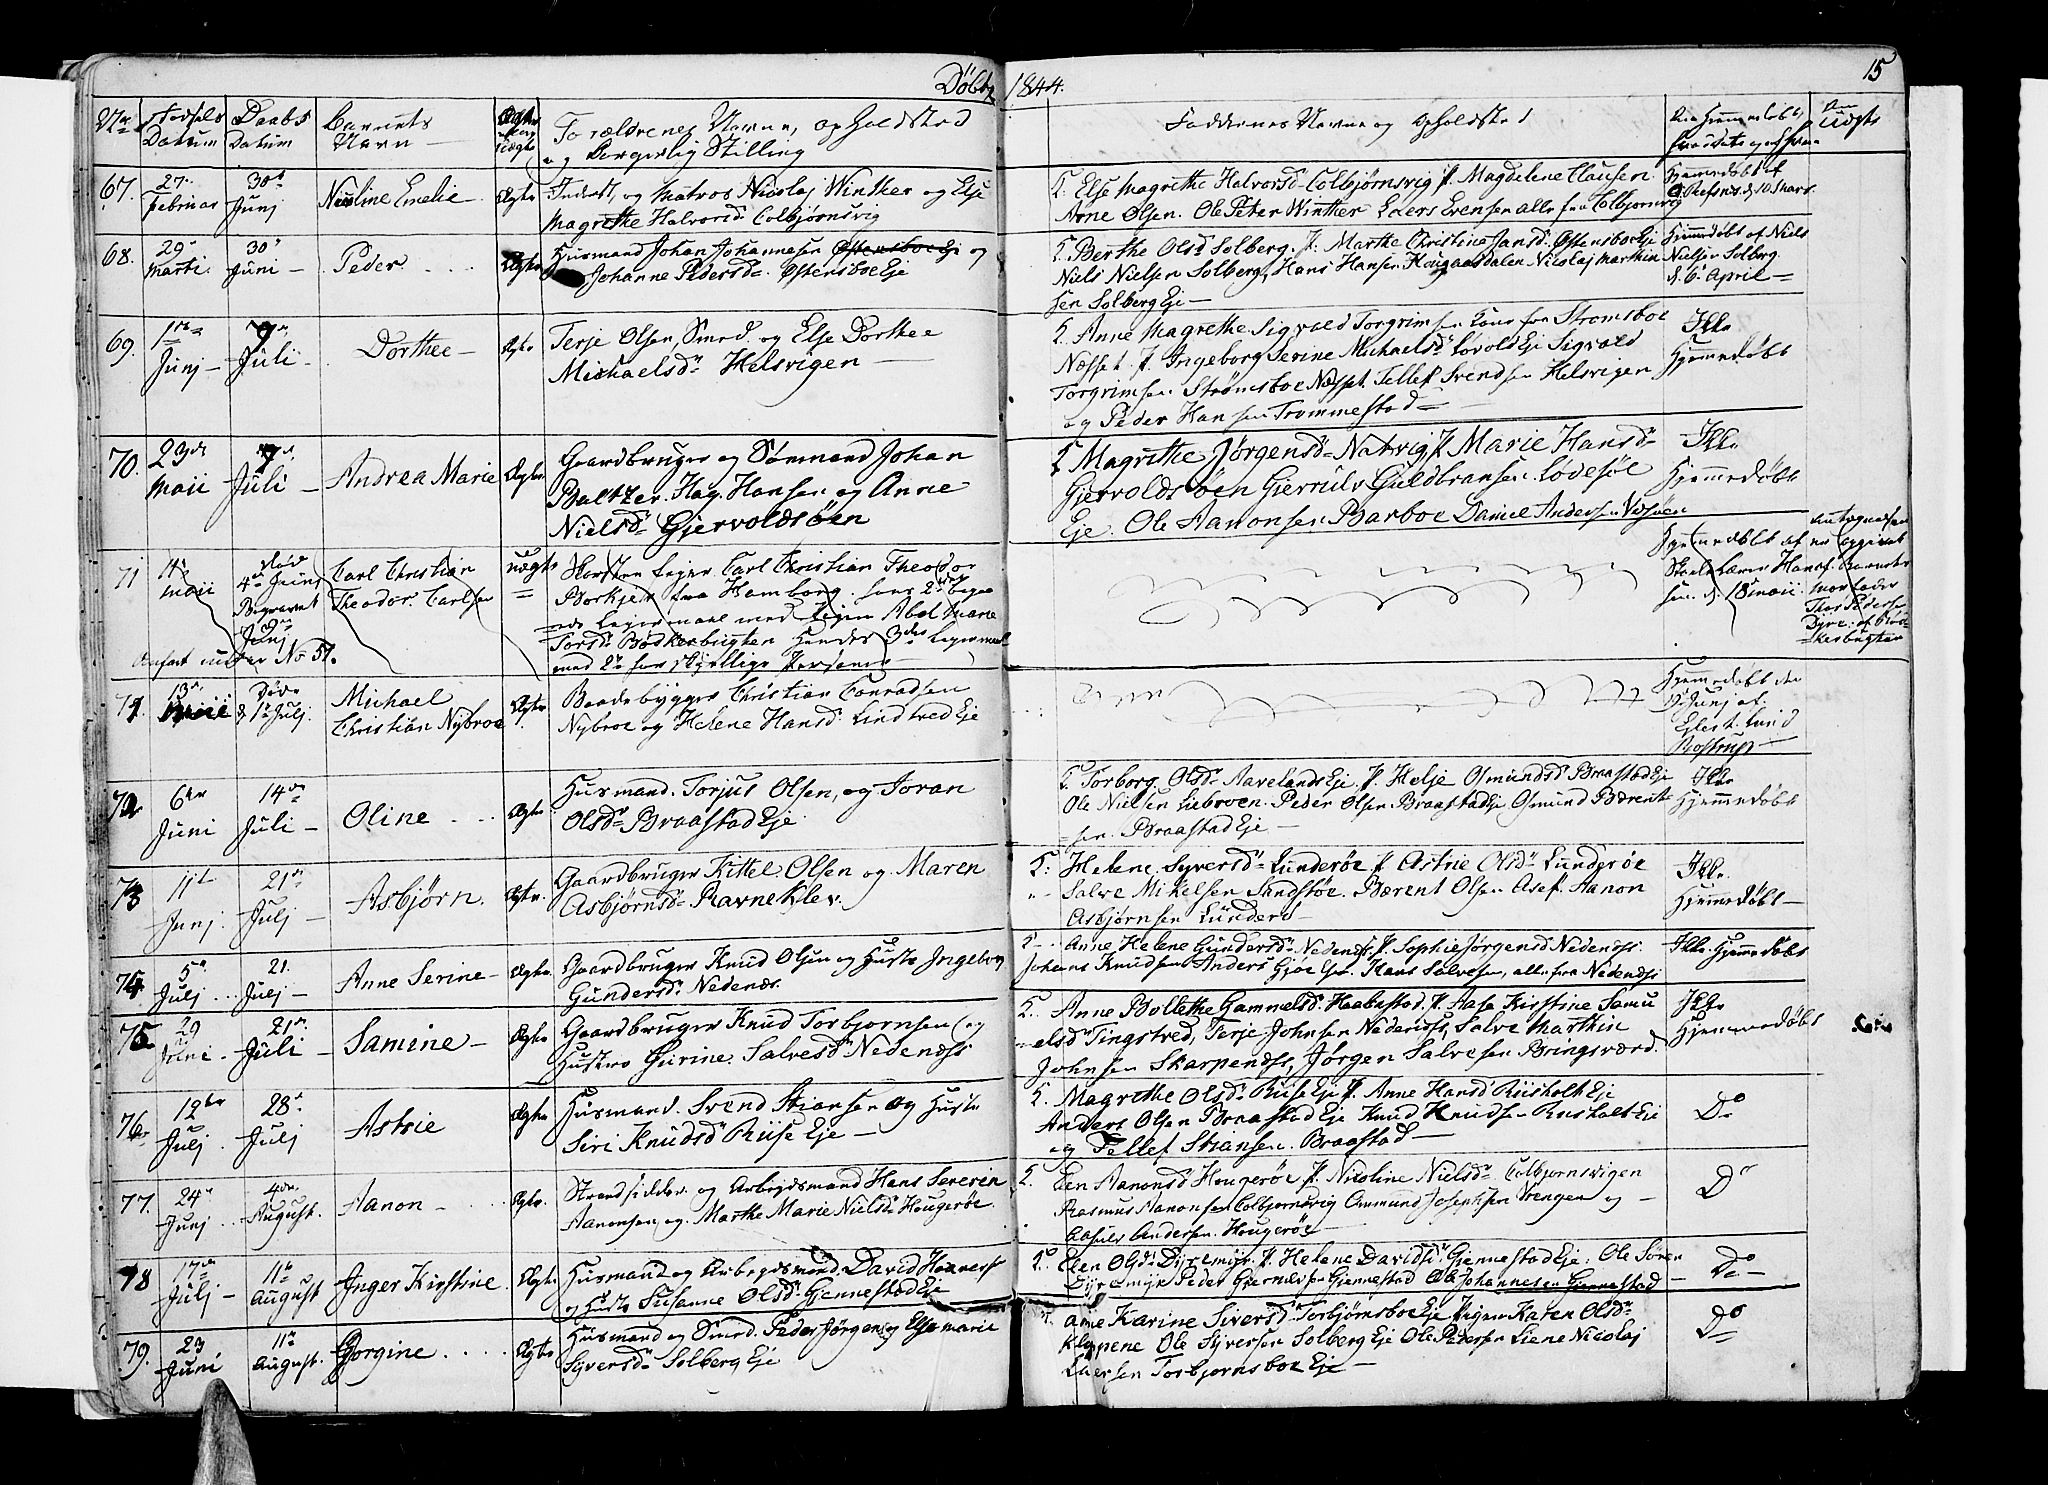 Döbte 1844. 15
No Fødsels Datum Daabs Datum Barnets Navn Ægte eller uægte Forældrenes Navne, Opholdsted og Borgerlig Stilling
Faddernes Navne og Opholdsted
67. 27. Februar 30te Junj Nicoline Emelie Ægte Inderst, og Matros Nicolaj Winther og Else
Magrethe Halvorsd. Colbjørnsvig
K. Else Magrethe Halvorsd. Colbjørnsvig P. Magdelene Clausen
Arne Olsen. Ole Peter Winther Evensen alle fra Colbjørnsvig
Hjemmedøbt af d. 10 Marts
68. 29 Marti 30 Juni Peder Ægte Husmand Johan Johannesen Østensboe Eje og
Johanne Pedersd. Østensboe Eje
K. Berthe Olsd. Solberg. P. Marthe Christine Jansd. Østensboe Eje
Niels Nielsen Solberg, Hans Hansen Hougaasdalen Nicolaj Marthin
sen Solberg Eje
Hjemmedøbt af Niels
Nielsen Solberg
d. 6 April
69. 1ste Junj 7de Juli Dorthee Ægte Terje Olsen Smed og Else Dorthee
Michaelsd. Helsvigen
K. Anne Magrethe Sigvald Torgrimsen Kone fra Strømsboe
Næsset. P. Ingeborg Serine Michaelsd. Løvold Eje Sigvald
Torgrimsen Strømsboe Næsset Tellef Svendsen Helsvigen
og Peder Hansen Trommestad
Ikke
Hjemmedøbt
70. 23de Maii 7de Juli Andrea Marie Ægte Gaardbruger og Sømand Johan
Baltzer Hag. Hansen og Anne
Nielsd. Gjervoldsøen
K. Magrethe Jørgensd. Natvig P. Marie Hansd.
Gjervoldsøen Gjerulv Guldbransen Lødesøl
Eje. Ole Aanonsen Barboe Daniel Andersen
Ikke
Hjemmedøbt
71 1te Maii død 4de Junj Begravet Junj Carl Christian
Theodor Carlsen uægte Carl Christian Theodor
Borkjer fra Hamborg. hans 2det begaa
ede Leiermaal med Pigen Abel Marie
Torsd. Bødkerbugten Hendes 3die Leiermaal
med 2de forskjellige Personer
Anført under No 51.
Hjemmedøbt af
Skolelærer Hansen. d. 18 Maii
Antegnelsen
er opgivet
af Barnets
Morfader
Thor Pedersen
Dyre. af Bød-
kerbugten
71. 13. Døde d. 1te Julj. Michael
Christian Nybroe Ægte Baadebygger Christian Conradsen
Nybroe og Helene Hansd. Lindtved Eje
Hjemmedøbt den
Junj af
Lund
Bostrup
72 6te Juni 14de Juli Oline Ægte Husmand. Torjus Olsen, og Joran
Olsd. Braastad Eje
K. Torborg Olsd. Aavelands Eje. P. Helje Osmundsd. Braastad Eje
Ole Nielsen Liebroen. Peder Olsen Braastad Eje Osmund Bærent
sen. Braastad Eje
Ikke
Hjemmedøbt
73 11te Junj. 21de Julj Asbjørn. Ægte. Gaardbruger Kittel Olsen og Maren
Asbjørnsd. Ravneklev.
K: Helene Syversd. Lunderøe P. Astrie Olsd. Lunderøe
Salve Mikelsen Sandstøe. Bærent Olsen Asef. Aanon
Asbjørnsen Lunderø
Ikke
Hjemmedøbt
74 5te Julj 21. Julj Anne Serine Ægte Gaardbruger Knud Olsen og Hustr Ingeborg
Gundersd. Nedenæs.
K. Anne Helene Gundersd. Nedenæs, P. Sophie Jørgensd. Nedenæs.
Johans Knudsen Anders Gjøe Hans Salvesen, alle fra Nedenæs
Ikke Hjemmedøbt
75 29 Juni 21de Juli Samine Ægte Gaardbruger Knud Torbjornsen og
Hustro Gurine Salvesd. Nedenæs
K.. Anne Bollethe Gammelsd. Haabestad, P. Aase Kirstine Samu
elsd Tingstved, Terje Johnsen Nedenæs, Salve Marthin
Johnsen Skarpenæs, Jørgen Salvesen Bringsværd.
Ikke
Hjemmedøbt
76 12te Julj. 28de Julj Astrie Ægte Husmand. Svend Stiansen og Hustr
Siri Knudsd. Riise Eje
K. Magrethe Olsd. Riise Eje P. Anne Hansd. Riisholt Eje
Anders Olsen Braastad Eje Knud Knudsen Riisholt Eje
og Tellef Stiansen Braastad
Do
77. 24 Junj 4de August. Aanon Ægte. Strandsidder og Arbejdsmand Hans Severin
Aanonsen, og Marthe Marie Nielsd. Hougerøe
K. Elen Aanonsd Hougerøe P. Nicoline Nielsd. Colbjørnsvigen
Rasmus Aanonsen Colbjørnsvig Ommund Josephsen Vrengen og
Andersen. Hougerøe
Do
78 17de Julj 11te August Inger Kirstine Ægte Husmand og Arbejdsmand. David
og Hustr Susanne Olsd. Gjennestad Eje
K. Elen Olsd. Dyremyr. P. Helene Davidsd. Gjennestad Eje. Ole Søren
Dyremyr Peder Gjennestad Ole Johannesen Gjennestad
Do
79. 23 Juni 11te August. Gorgine Ægte Husmand og Smed. Peder Jørgens og Else Marie
Syversd. Solberg Eje
Karine Siversd. Torbjørnsboe Eje Pigen Karen Olsd.
Kloppene Ole Syversen Solberg Eje Ole Pedersen Liene Nicolaj
Torbjornsboe Eje
Do